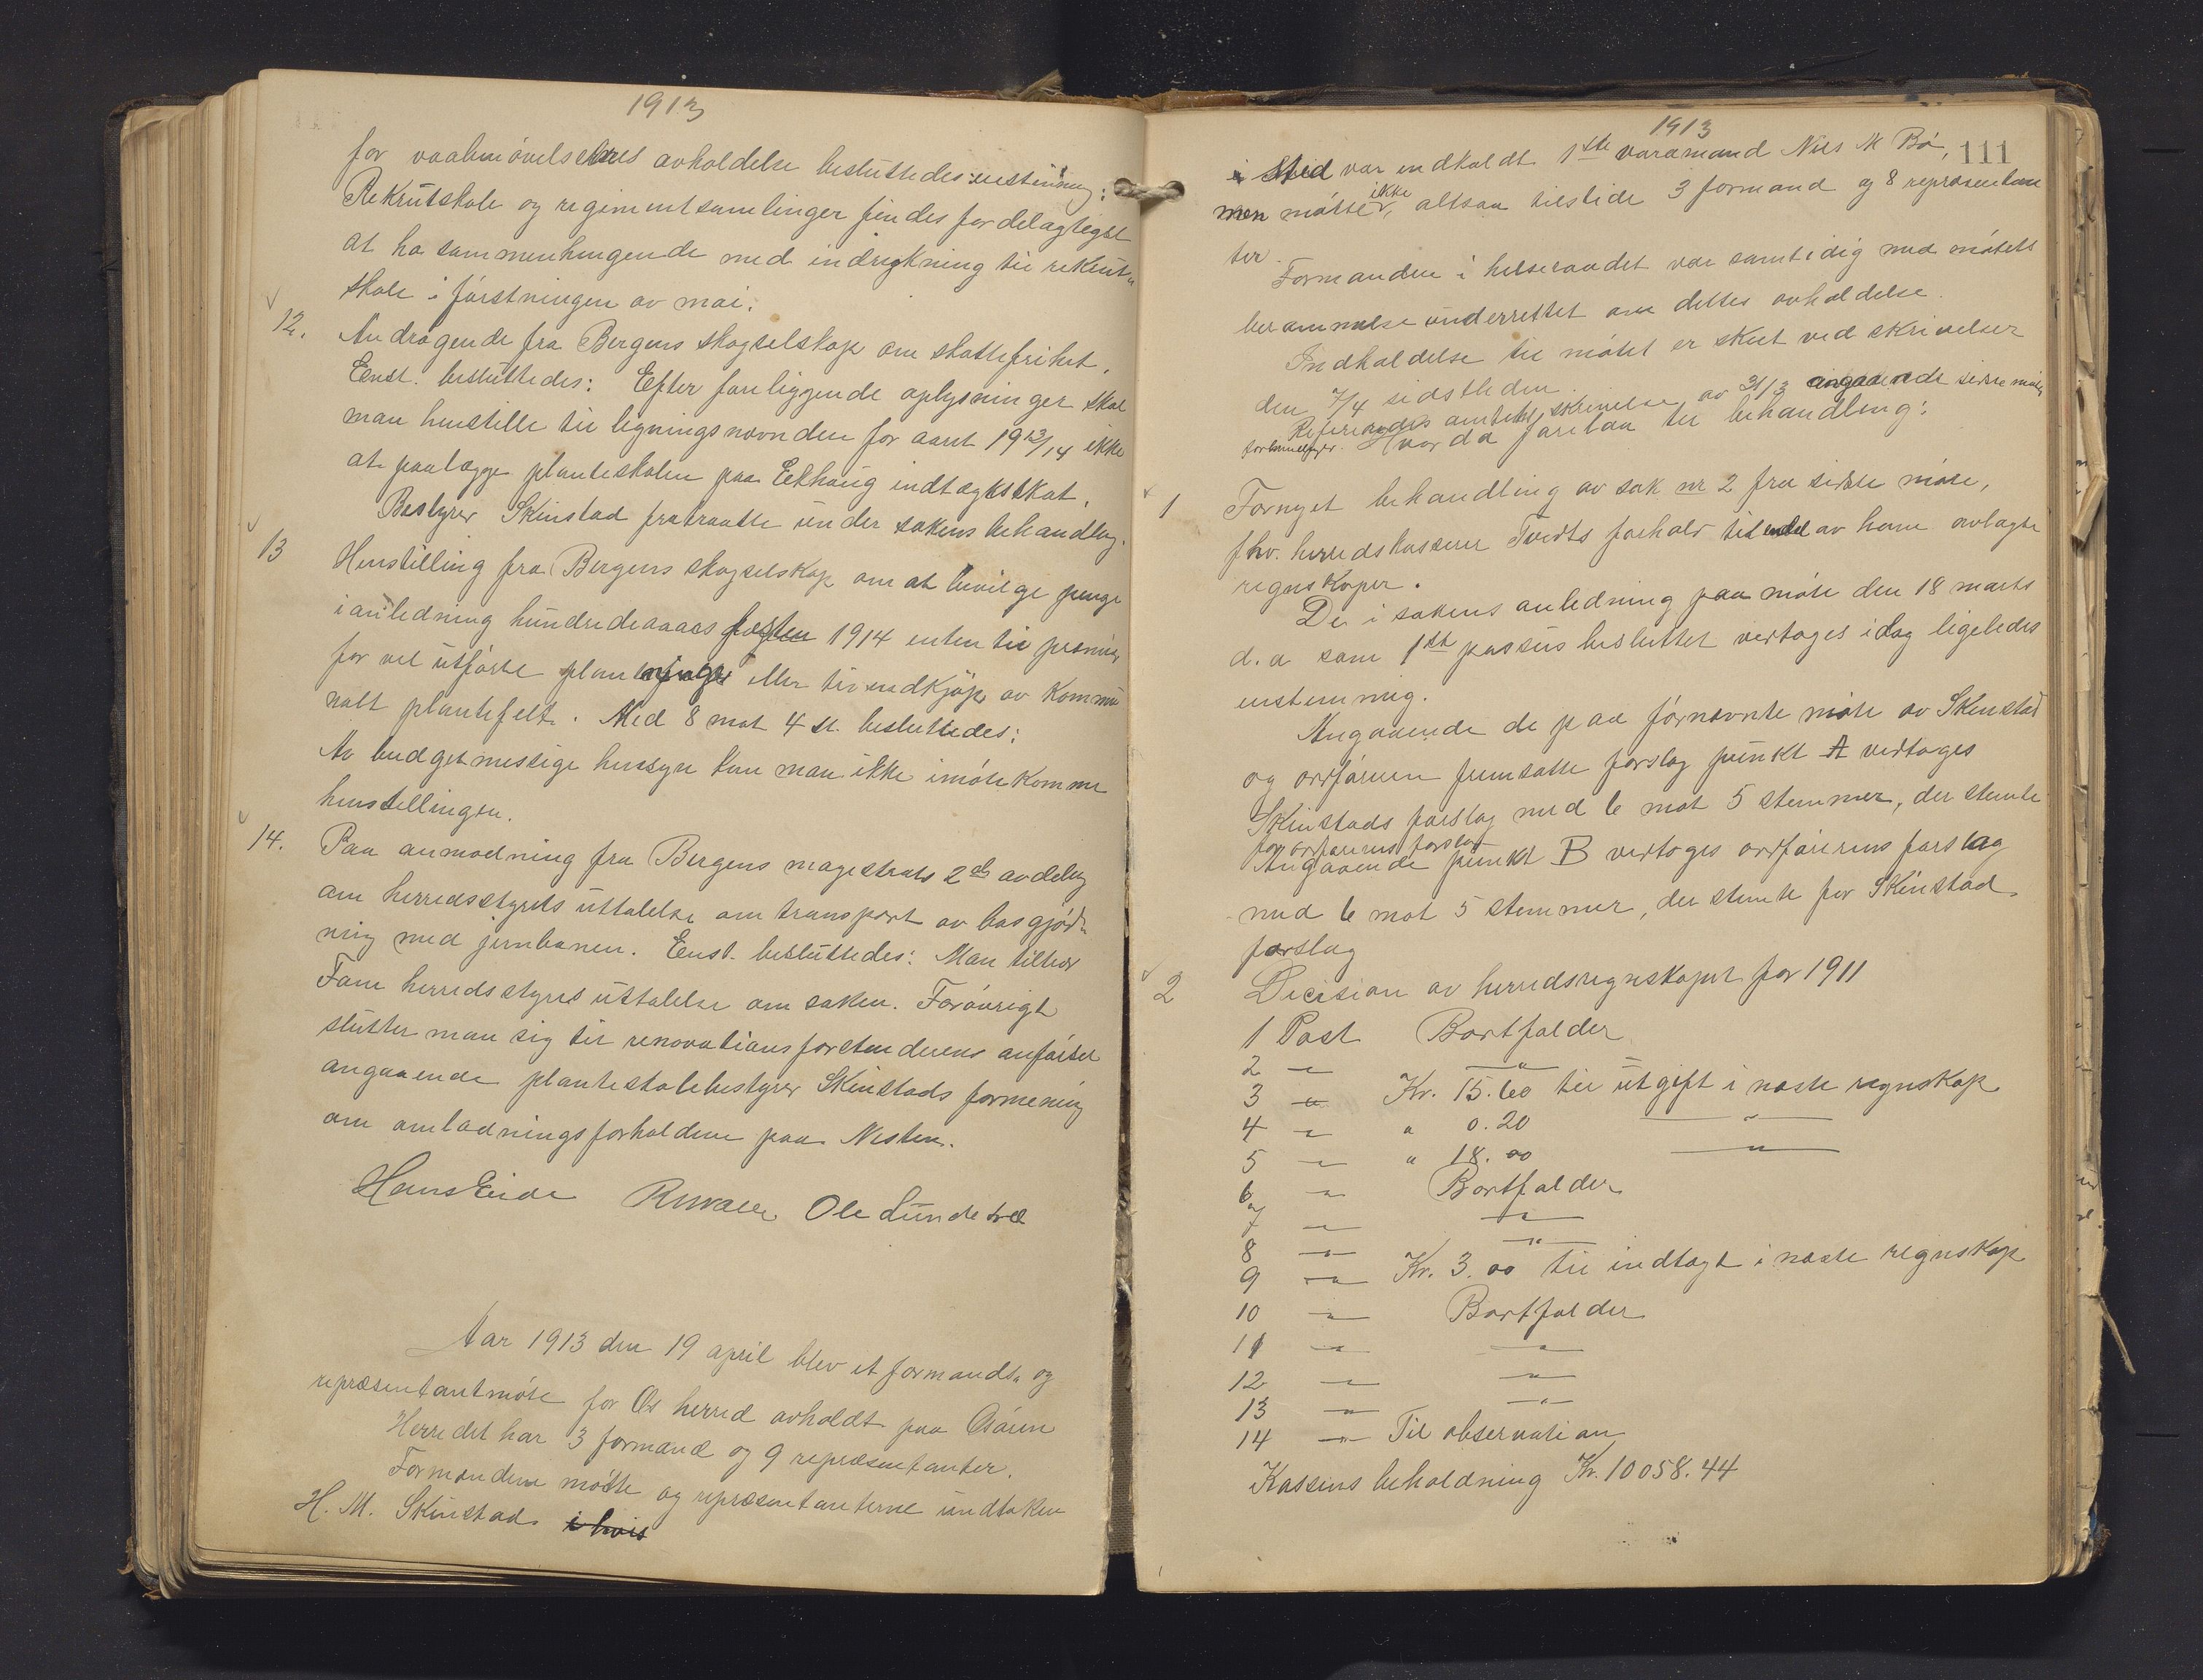 1913
for vaabenøvelsernes avholdelse besluttedes enstemmig:
Rekrutskole og regimentsamlinger findes fordelagtigst
at ha sammenhengende med indrykning til rekrut-
skole i førstningen av mai.
12. Andragende fra Bergens skogselskap om skattefrihet.
Enst. besluttedes: Efter foreliggende oplysninger skal
man henstille til ligningsnevnden for aaret 1913/14 ikke
at paalægge planteskolen paa Eekhaug indtægtsskat.
Bestyrer Skinstad fratraatte under sakens behandling.
13 Henstilling fra Bergens skogselskap om at bevilge penge
i anledning hundredeaars festen 1914 enten til premier
for vel utførte plantninger eller til indkjøp av kommu
nalt plantefelt. Med 8 mot 4 st. besluttedes:
Av budgetmessige hensyn kan man ikke imøtekomme
henstillingen.
14. Paa anmodning fra Bergens magistrats 2den avdeling
om herredsstyrets uttalelse om transport av bosgjød-
ning med jernbanen. Enst. besluttedes: Man tiltrær
Fane herredsstyres uttalelse om saken. Forøvrigt
slutter man sig til renovationsforstanderens anførsel
angaaende planteskolebestyrer Skinstads formening
om omladningsforholdene paa Nesttun.
Hans Eide Ole Lundetræ
Aar 1913 den 19 april blev et formands- og
representantmøte for Os herred avholdt paa Osøren
Herredet har 3 formænd og 9 representanter.
Formændene møtte og representanterne undtaken
H. M. Skinstad i hvis
1913
111
i sted var indkaldt 1ste varamand Nils M Bø,
men møtte ikke, altsaa tilstede 3 formænd og 8 representan
ter.
Formanden i helseraadet var samtidig med møtets
berammelse underrettet om dettes avholdelse.
Indkaldelse til møtet er skeet ved skrivelser
den 7/4 sidstleden.
Refereredes amtets skrivelse av 31/3 angaaende sidste møtes
forhandlinger. Hvor da forelaa til behandling:
1 Fornyet behandling av sak nr 2 fra sidste møte,
fhv. herredskasserer Tveits forhold til endel av ham avlagte
regnskaper.
De i sakens anledning paa møte den 18 marts
d.a som 1ste passus besluttet vertoges idag ligeledes
enstemmig.
Angaaende de paa førnævnte møte av Skinstad
og ordføreren fremsatte forslag punkt A vertoges
Skinstads forslag med 6 mot 5 stemmer, der stemte
for ordførerens forslag
Angaaende punkt B vertoges ordførerens forslag
med 6 mot 5 stemmer, der stemte for Skinstads
forslag
2 Decision av herredsregnskapet for 1911
1 Post Bortfalder
2 — " — "
3 — " Kr. 15.60 til utgift i næste regnskap
4 — " " 0.20 — " —
5 — " " 18.00 — " —
6 — " Bortfalder
7 — " — "
8 — " — "
9 — " Kr. 3.00 til indtægt i næste regnskap
10 — " Bortfalder
11 — " — "
12 — " — "
13 — " — "
14 — " Til observation
Kassens beholdning Kr. 10058.44